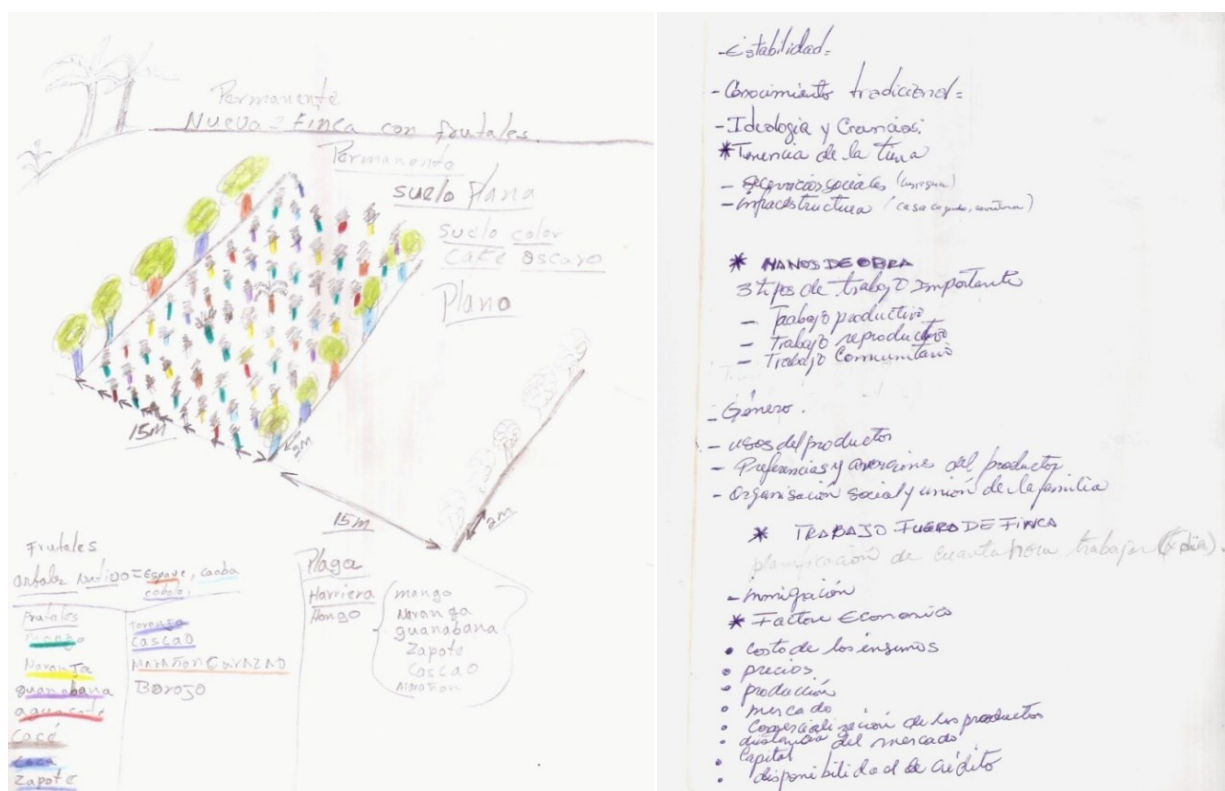 Permanente
Nueva = Finca con frutales
Permanente
suelo plana
suelo color
cafe oscuro
Plano
15M
15M
2M
Frutales
arboles nativo = espave, caoba
Frutales
Mango
Naranja
guanabana
aguacate
Coco
Zapote
toronja
Cascao
Marañon Curazao
Borojo
Plaga
Harriera
Hongo
mango
Naranga
guanabana
Zapote
Cascao
Marañon
- Estabilidad=
- Conocimiento tradicional=
- Ideologia y Creencias:
* Tenencia de la tierra
sociales
- infraestructura
* MANOS DE OBRA
3 tipos de trabajo Importante
- Trabajo productivo
- Trabajo reproductivo
- Trabajo Comunitario
- Género.
- usos del productor
- Preferencias y aversiones del productor
- Organisación social y unión de la familia
* TRABAJO FUERA DE FINCA
planificación de cuanta hora trabajar (x dia).
- inmigración
* Factore Economico
• costo de los insumos
• precios
• producción
• mercado
• comercialización de los productos
• distancia del mercado
• Capital
• disponibilidad de crédito